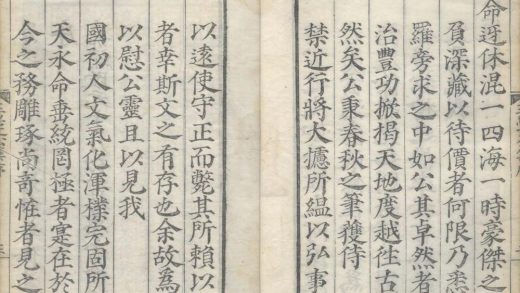 命迓休混一四海一時豪傑之
負深藏以待價者何限乃悉
羅旁求之中如公其卓然者
治豐功掀揭天地度越徃古
然矣公秉春秋之筆獲侍
禁近行將大攄所緼以弘事
以遠使守正而斃其所賴以
者幸斯文之有存也余故為
以慰公靈且以見我
國初人文氣化渾樸完固所
天永命垂統罔極者寔在於
今之務雕琢尚奇恠者見之